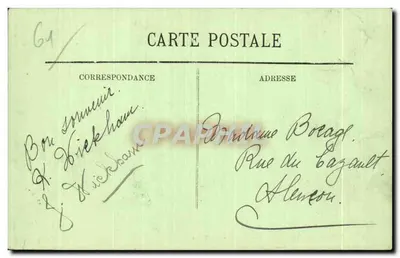 61
CARTE POSTALE
CORRESPONDANCE
ADRESSE
Bon souvenir.
K. Wickham.
& J. Wickham
Madame Bocage
Rue du Cazault
Alençon.